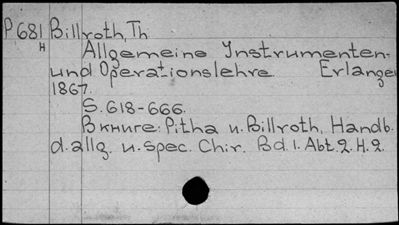 P681 Billroth, Th
н
Allgemeine Instrumenten-
und Operationslehre Erlangen
1867.
S. 618-666.
В книге: Pitha u. Billroth, Handb.
d. allg. u. spec. Chir. Bd. 1. Abt. 2. H. 2.